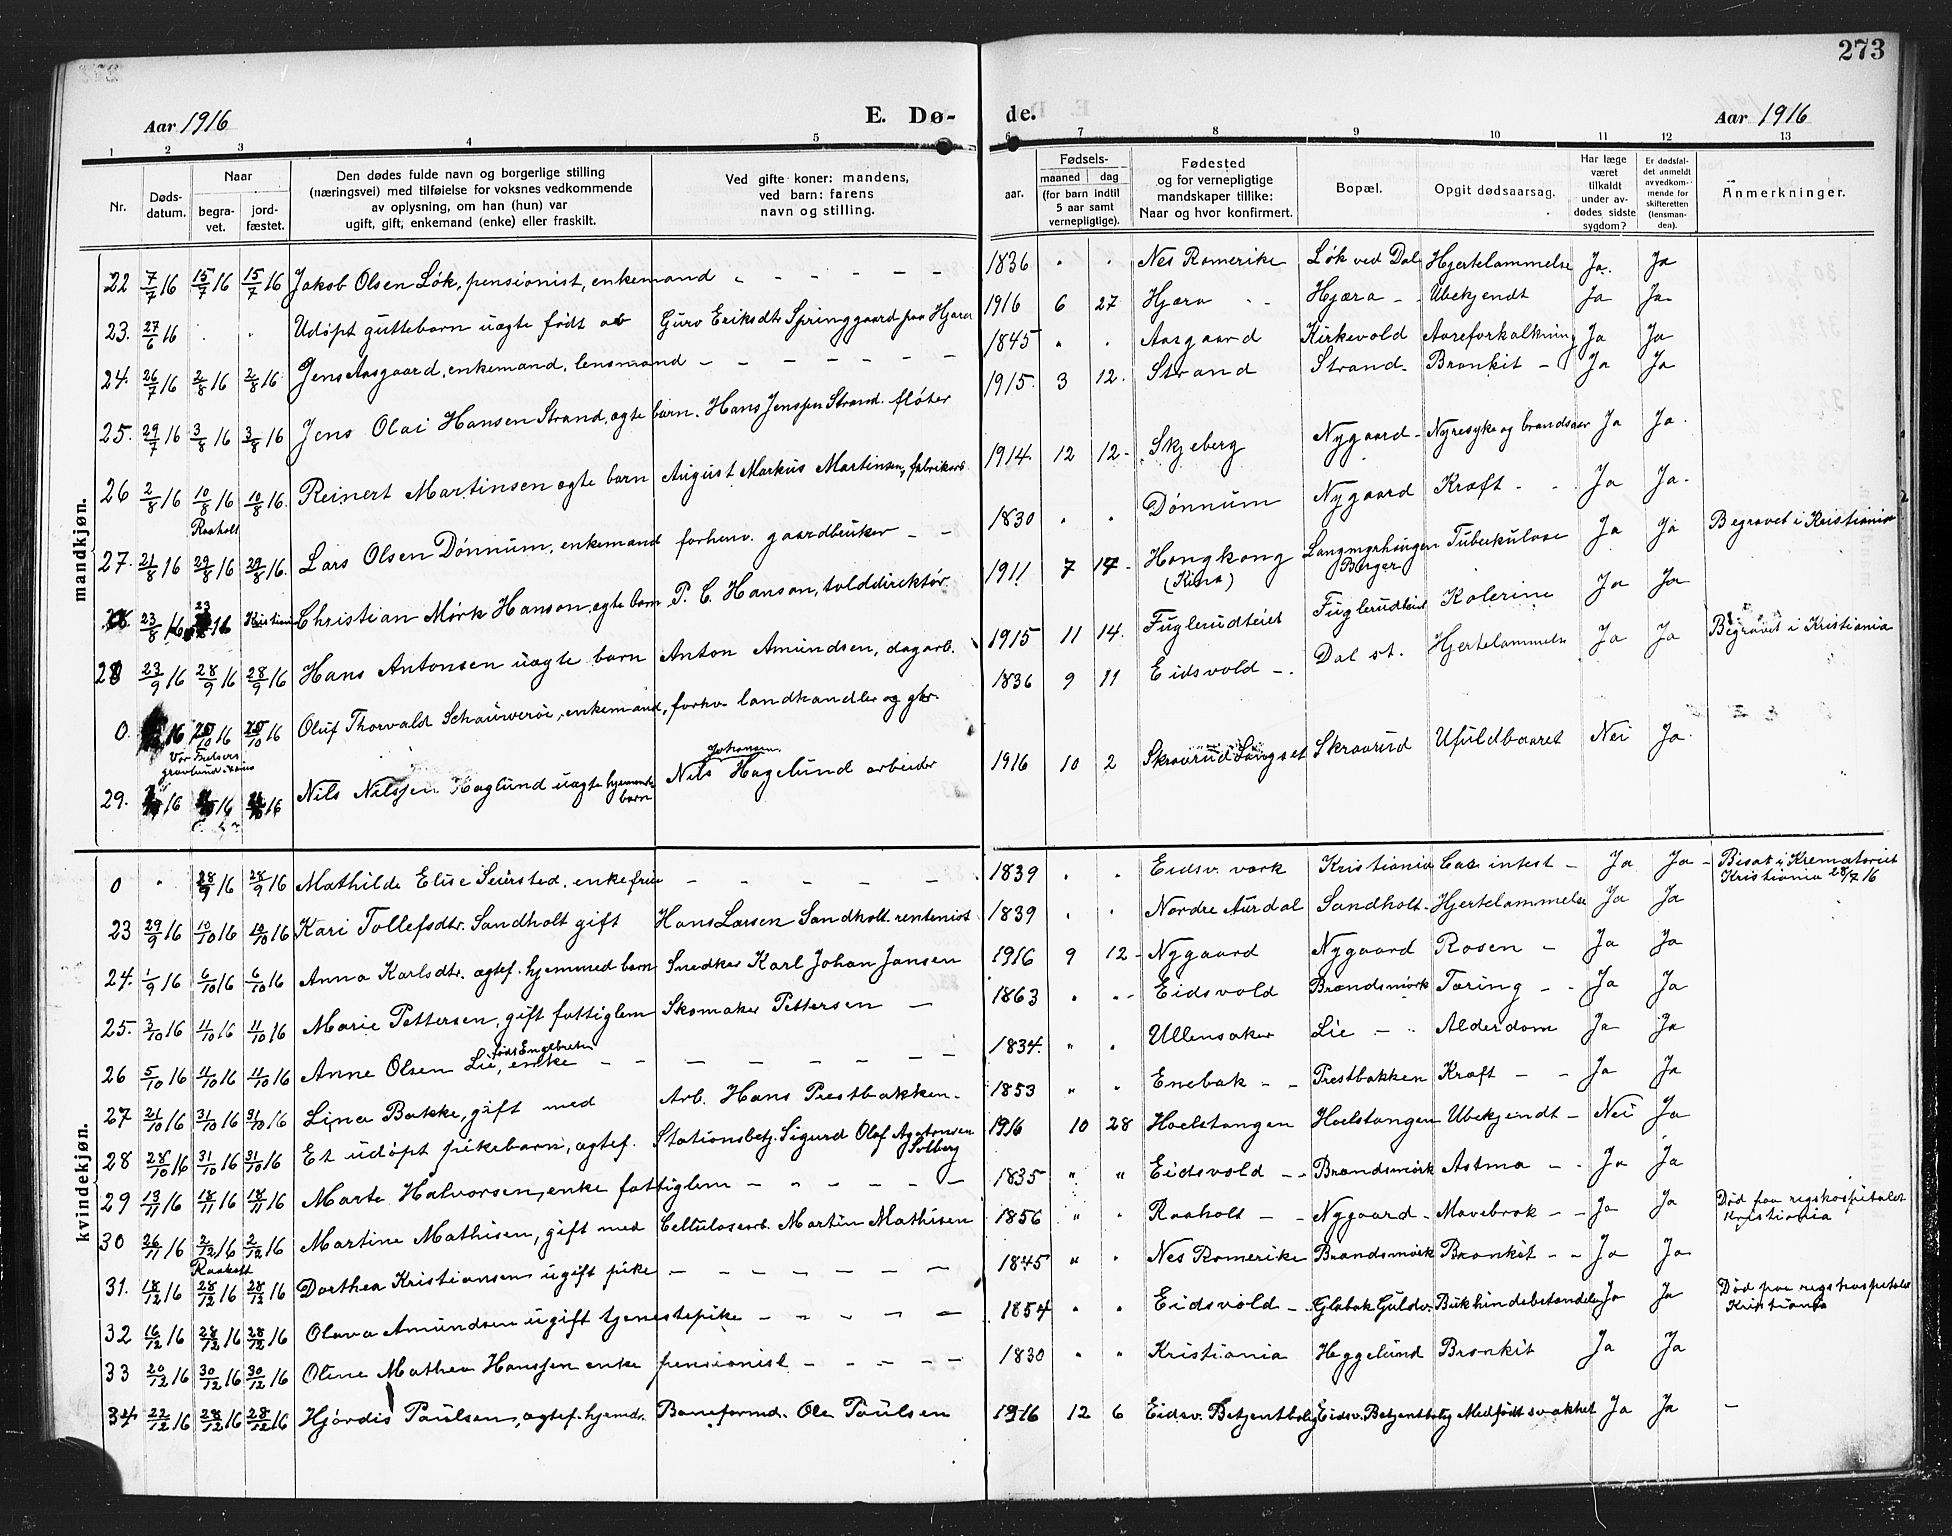 273
Aar 1916 E. Dø- de. Aar 1916
1 2 3 4 5 6 7 8 9 10 11 12 13
Nr. Døds-datum. Naar begra-vet. jord-fæstet. Den dødes fulde navn og borgerlige stilling (næringsvei) med tilføielse for voksnes vedkommende av oplysning, om han (hun) var ugift, gift, enkemand (enke) eller fraskilt. Ved gifte koner: mandens, ved barn: farens navn og stilling. aar. Fødsels- maaned dag (for barn indtil 5 aar samt vernepligtige). Fødested og for vernepligtige mandskaper tillike: Naar og hvor konfirmert. Bopæl. Opgit dødsaarsag. Har læge været tilkaldt under av-dødes sidste sygdom? Er dødsfal-det anmeldt av vedkom-mende for skifteretten (lensman-den). Anmerkninger.
mandkjøn.
22 7/7 16 15/7 16 15/7 16 Jakob Olsen Løk, pensionist, enkemand 1836 Nes Romerike Løk ved Dal Hjertelammelse Ja. Ja
23. 27/6 16 Udøpt guttebarn uægte født av Guro Eriksdtr Springgaard paa Hjæra 1916 6 27 Hjæra Hjæra Ubekjendt Ja Ja
24. 26/7 16 2/8 16 2/8 16 Jens Aasgaard, enkemand, lensmand 1845 Aasgaard Kirkevold Aareforkalkning Ja Ja
25. 29/7 16 3/8 16 3/8 16 Jens Olai Hansen Strand, ægte barn. Hans Jenssen Strand. fløter 1915. 3 12. Strand Strand. Bronkit Ja Ja
26 2/8 16 10/8 16 10/8 16. Reinert Martinsen ægte barn August Markus Martinsen, fabrikarb. 1914. 12 12 Skjeberg Nygaard Nyresyke og brandsaar Ja Ja.
Raaholt
27. 21/8 16 29/8 16 29/8 16. Lars Olsen Dønnum, enkemand forhenv. gaardbruker 1830 Dønnum Nygaard Kræft Ja Ja.
23/8 16 16 Kristiania Christian Mørk Hanson, ægte barn P. C. Hanson, tolddirektør 1911 7 17 Hongkong (Kina) Berger Tuberkulose Ja Ja Begravet i Kristiania
28 23/9 16 28/9 16 28/9 16 Hans Antonsen uægte barn Anton Amundsen, dagarb. 1915 11 14. Fuglerudteiet Fuglerudteiet Kolerine Ja Ja
0. 16 25/10 16 25/10 16 Oluf Thorvald Schouwerøe, enkemand, forhv. landhandler og gbr. 1836 9 11 Eidsvold Dal st. Hjertelammelse Ja Ja Begravet i Kristiania
Vor Frelsers gravlund
29. 16 16 16 Nils Nilssen Haglund uægte hjemmedr barn Nils Johansen Hagelund arbeider 1916 10 2 Skraarud Langset Skraarud Ufuldbaaret Nei Ja.
kvindekjøn.
0 28/9 16 28/9 16 Mathilde Elise Seiersted. enkefrue 1839 Eidsv. værk Kristiania Ca. intest Ja Ja Bisat i Krematoriet Kristiania 28/7 16
23 29/9 16 10/10 16 10/10 16 Kari Tollefsdtr. Sandholt gift Hans Larsen Sandholt. rentenist 1839 Nordre Aurdal Sandholt Hjertelammelse Ja Ja
24. 1/9 16 6/10 16 6/10 16 Anna Karlsdtr. ægtef. hjemmed barn Snedker Karl Johan Jansen 1916 9 12 Nygaard Nygaard Rosen Ja Ja
25. 3/10 16 11/10 16 11/10 16 Marie Pettersen, gift fattiglem Skomaker Pettersen 1863 Eidsvold Brandsmork Tæring Ja Ja
26 5/10 16 11/10 16 11/10 16 Anne Olsen Lie, født Engebretsen enke 1834. Ullensaker Lie Alderdom Ja Ja
27 21/10 16 31/10 16 31/10 16 Lina Bakke, gift med Arb. Hans Prestbakken. 1853 Enebak Prestbakken Kræft Ja Ja
28 28/10 16 31/10 16 31/10 16 Et udøpt pikebarn, ægtef. Stationsbetj. Sigurd Olaf Agatonsen Solberg 1916 10 28 Hoelstangen Hoelstangen Ubekjendt Nei Ja
29 13/11 16 18/11 16 18/11 16 Marte Halvorsen, enke fattiglem 1835 Eidsvold Brandsmork Astma Ja Ja
30 26/11 16 2/12 16 2/12 16 Martine Mathisen, gift med Cellulosearb. Martin Mathisen 1856 Raaholt Nygaard Mavebrok Ja Ja Død paa rigshospitalet Kristiania
Raaholt
31. 18/12 16 28/12 16 28/12 16 Dorthea Kristiansen ugift pike 1845 Nes Romerike Brandsmork Bronkit Ja Ja
32 16/12 16 28/12 16 28/12 16 Olava Amundsen ugift tjenestepike 1854 Eidsvold Globak Guldv. Bukhindebetændelse Ja Ja Død paa rigshospitalet Kristiania
33 20/12 16 30/12 16 30/12 16 Oline Mathea Hanssen enke pensionist 1830 Kristiania Heggelund Bronkit Ja Ja
34 22/12 16 28/12 16 28/12 16 Hjørdis Paulsen, ægtef. hjemdr. Baneformd. Ole Paulsen 1916 12 6 Eidsv. Betjentbolig Eidsv. Betjentbolig Medfødt svakhet Ja Ja